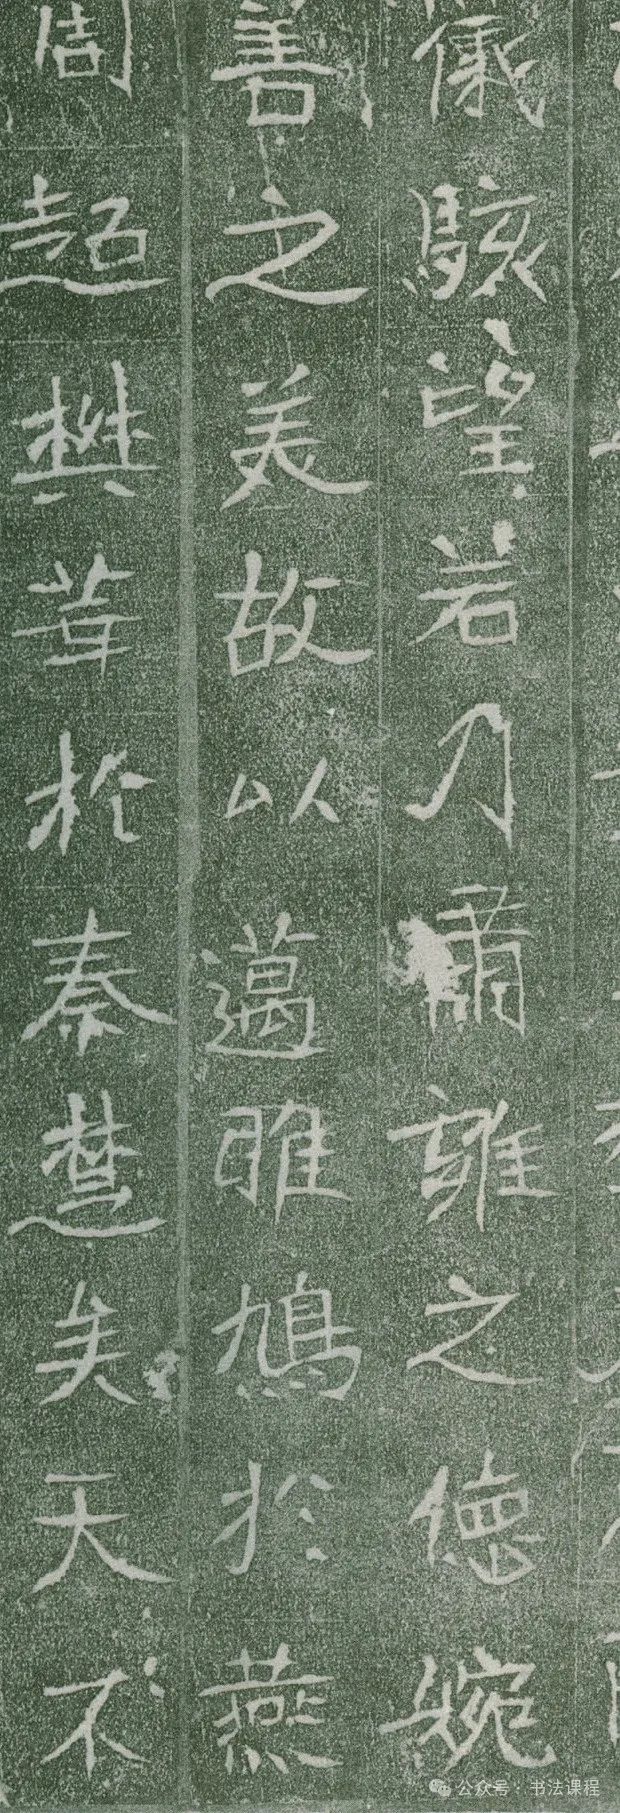 儀駭望若乃肅雍之德婉
善之美故以邁雎鳩於燕
周超樊莘於秦楚矣天不
公众号：书法课程